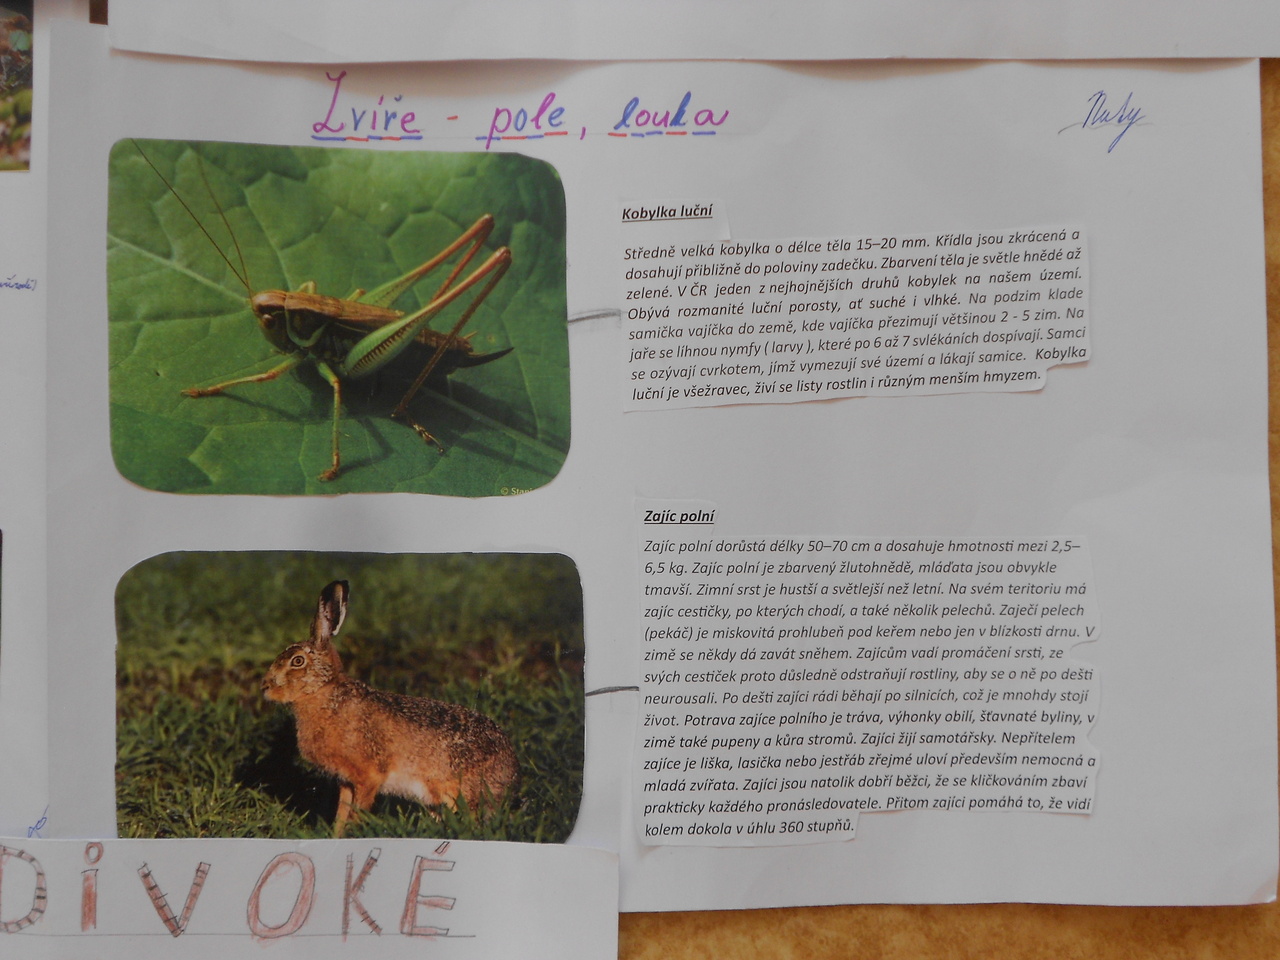 Zvíře - pole, louka
Kobylka luční
Středně velká kobylka o délce těla 15–20 mm. Křídla jsou zkrácená a
dosahují přibližně do poloviny zadečku. Zbarvení těla je světle hnědé až
zelené. V ČR jeden z nejhojnějších druhů kobylek na našem území.
Obývá rozmanité luční porosty, ať suché i vlhké. Na podzim klade
samička vajíčka do země, kde vajíčka přezimují většinou 2 - 5 zim. Na
jaře se líhnou nymfy ( larvy ), které po 6 až 7 svlékáních dospívají. Samci
se ozývají cvrkotem, jímž vymezují své území a lákají samice. Kobylka
luční je všežravec, živí se listy rostlin i různým menším hmyzem.
Zajíc polní
Zajíc polní dorůstá délky 50–70 cm a dosahuje hmotnosti mezi 2,5–
6,5 kg. Zajíc polní je zbarvený žlutohnědě, mláďata jsou obvykle
tmavší. Zimní srst je hustší a světlejší než letní. Na svém teritoriu má
zajíc cestičky, po kterých chodí, a také několik pelechů. Zaječí pelech
(pekáč) je miskovitá prohlubeň pod keřem nebo jen v blízkosti drnu. V
zimě se někdy dá zavát sněhem. Zajícům vadí promáčení srsti, ze
svých cestiček proto důsledně odstraňují rostliny, aby se o ně po dešti
neurousali. Po dešti zajíci rádi běhají po silnicích, což je mnohdy stojí
život. Potrava zajíce polního je tráva, výhonky obilí, šťavnaté byliny, v
zimě také pupeny a kůra stromů. Zajíci žijí samotářsky. Nepřítelem
zajíce je liška, lasička nebo jestřáb zřejmé uloví především nemocná a
mladá zvířata. Zajíci jsou natolik dobří běžci, že se kličkováním zbaví
prakticky každého pronásledovatele. Přitom zajíci pomáhá to, že vidí
kolem dokola v úhlu 360 stupňů.
DiVOKÉ